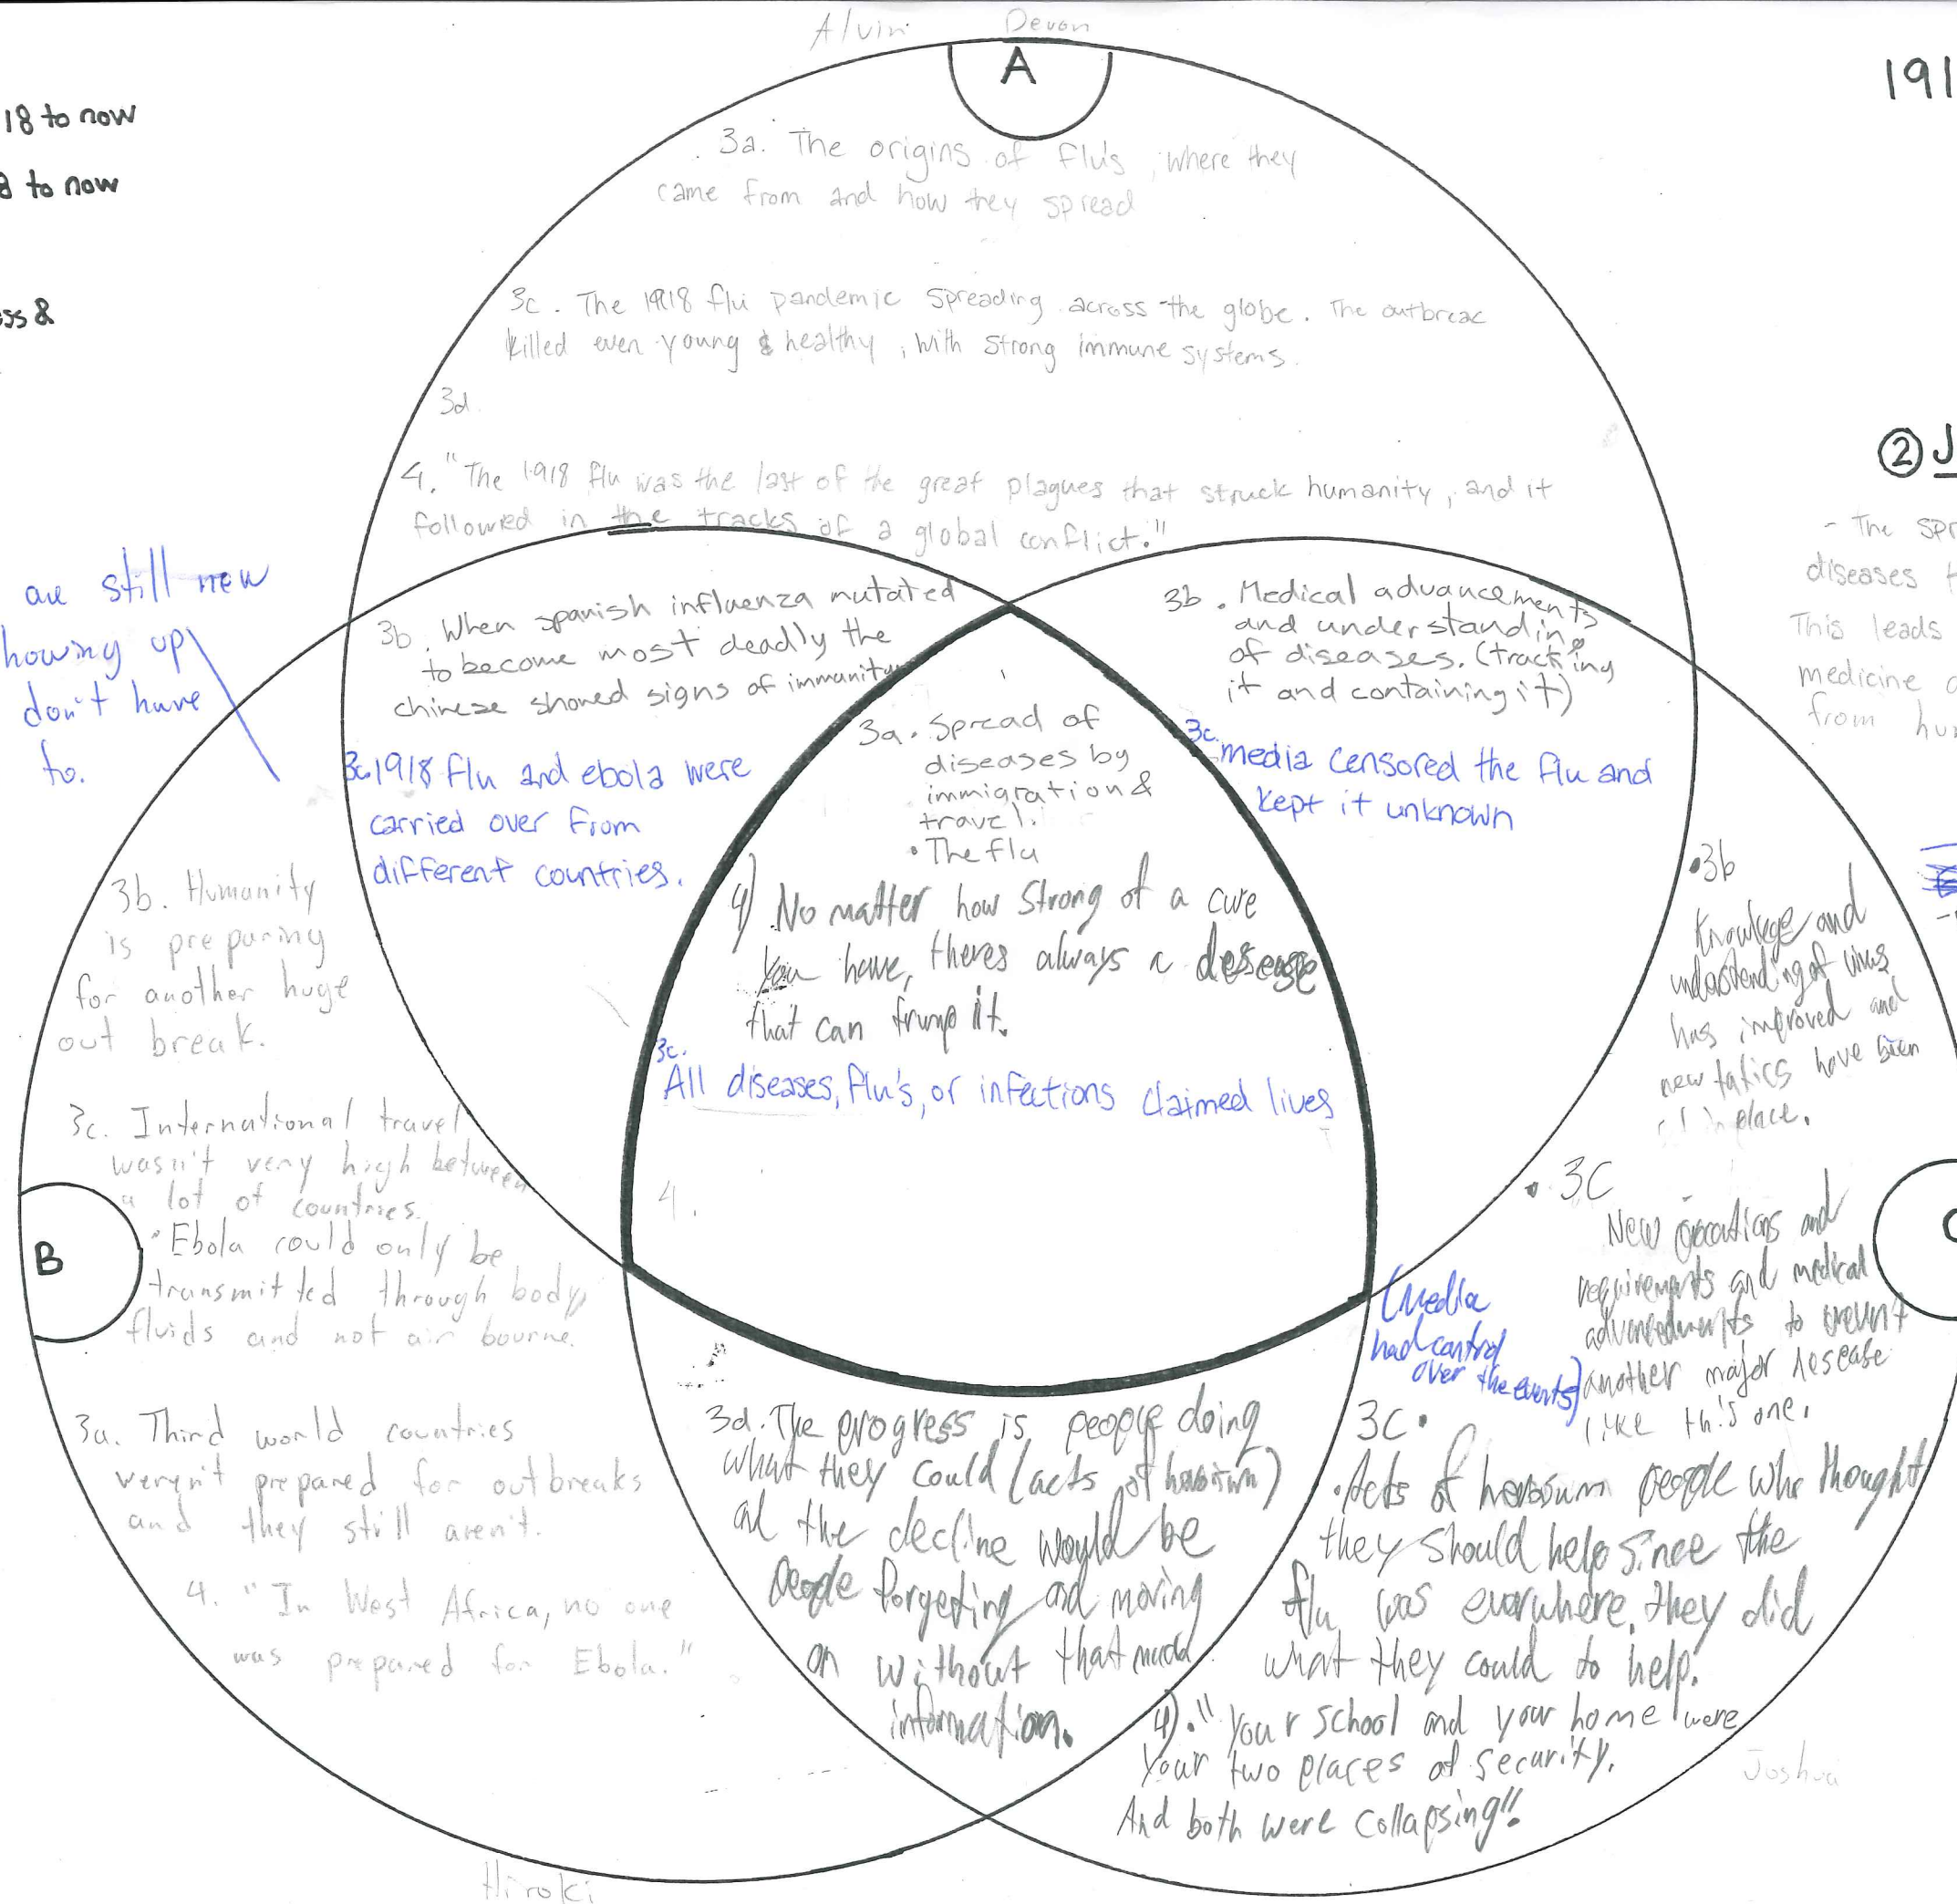 Alvin Devon
A
191
18 to now
8 to now
ss &
3a. The origins of flu's, where they
came from and how they spread
3c. The 1918 flu pandemic spreading across the globe. The outbreac
killed even young & healthy, with strong immune systems.
3d.
4. "The 1918 flu was the last of the great plagues that struck humanity, and it
followed in the tracks of a global conflict."
② J
- The spr
diseases t
This leads
medicine
from hu
are still new
howing up
don't have
to.
3b. When spanish influenza mutated
to become most deadly the
chinese showed signs of immunity
3c. 1918 flu and ebola were
carried over from
different countries.
3b. Medical advancements
and understanding
of diseases. (tracking
it and containing it)
3c. media censored the flu and
kept it unknown
3a. Spread of
diseases by
immigration &
travel.
• The flu
4) No matter how strong of a cure
you have, theres always a desease
that can trump it.
3c.
All diseases, flu's, or infections claimed lives
4.
3b. Humanity
is preparing
for another huge
out break.
3c. International travel
wasn't very high between
a lot of countries.
• Ebola could only be
transmitted through body
fluids and not air bourne.
B
3a. Third world countries
weren't prepared for outbreaks
and they still aren't.
4. "In West Africa, no one
was prepared for Ebola."
3d. The progress is people doing
what they could (acts of
the decline would be
people forgeting and moving
on without that much
information.
• 3b
Knowlege and
understanding of virus
has improved and
new tatics have been
place.
• 3C
New and
requirements and medical
to prevent
another major desease
like this one.
C
(Media
had control
over the events)
3C •
• Acts of people who thought
they should help since the
flu was everwhere. they did
what they could to help.
4). "Your school and your home were
your two places of security.
And both were collapsing".
Joshua
Hiroki